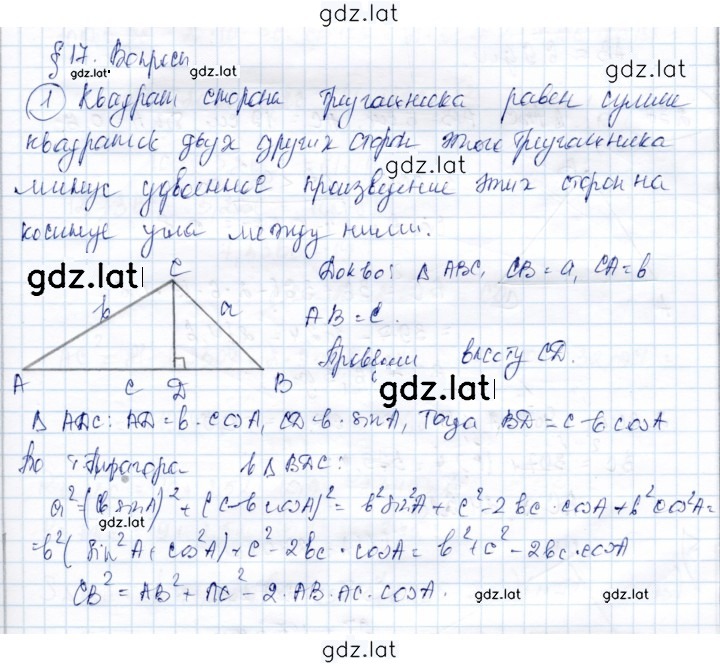 gdz.lat
§ 17. Вопросы
gdz.lat gdz.lat gdz.lat
1 Квадрат стороны треугольника равен сумме
квадратов двух других сторон этого треугольника
gdz.lat
минус удвоенное произведение этих сторон на
косинус угла между ними.
gdz.lat
C
b a
A c D B
Док-во: Δ ABC, CB = a, CA = b
gdz.lat
AB = c.
Провели высоту CD.
gdz.lat
Δ ADC: AD = b · cosA, CD = b · sinA, тогда BD = c - b cosA
По т. Пифагора в Δ BDC:
a² = (b sinA)² + (c - b cosA)² = b² sin²A + c² - 2bc · cosA + b² cos²A =
gdz.lat
= b² (sin²A + cos²A) + c² - 2bc · cosA = b² + c² - 2bc · cosA
CB² = AB² + AC² - 2 · AB · AC · cosA.
gdz.lat gdz.lat
gdz.lat